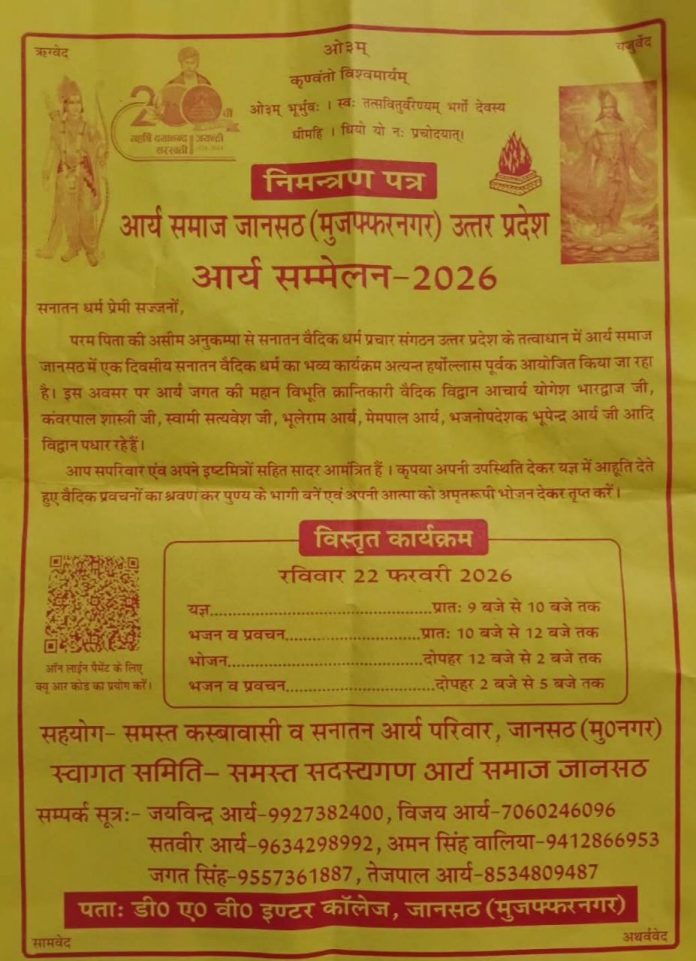 ओ३म्
ऋग्वेद
यजुर्वेद
कृण्वंतो विश्वमार्यम्
ओ३म् भूर्भुवः । स्वः तत्सवितुर्वरेण्यम् भर्गो देवस्य
धीमहि । धियो यो नः प्रचोदयात्।
200
महर्षि दयानन्द सरस्वती
जयन्ती
निमन्त्रण पत्र
आर्य समाज जानसठ (मुजफ्फरनगर) उत्तर प्रदेश
आर्य सम्मेलन-2026
सनातन धर्म प्रेमी सज्जनों,
परम पिता की असीम अनुकम्पा से सनातन वैदिक धर्म प्रचार संगठन उत्तर प्रदेश के तत्वाधान में आर्य समाज
जानसठ में एक दिवसीय सनातन वैदिक धर्म का भव्य कार्यक्रम अत्यन्त हर्षोल्लास पूर्वक आयोजित किया जा रहा
है। इस अवसर पर आर्य जगत की महान विभूति क्रान्तिकारी वैदिक विद्वान आचार्य योगेश भारद्वाज जी,
कंवरपाल शास्त्री जी, स्वामी सत्यवेश जी, भूलेराम आर्य, मेमपाल आर्य, भजनोपदेशक भूपेन्द्र आर्य जी आदि
विद्वान पधार रहे हैं।
आप सपरिवार एंव अपने इष्टमित्रों सहित सादर आमंत्रित हैं । कृपया अपनी उपस्थिति देकर यज्ञ में आहूति देते
हुए वैदिक प्रवचनों का श्रवण कर पुण्य के भागी बनें एवं अपनी आत्मा को अमृतरूपी भोजन देकर तृप्त करें।
विस्तृत कार्यक्रम
रविवार 22 फरवरी 2026
यज्ञ....................................प्रातः 9 बजे से 10 बजे तक
भजन व प्रवचन.......................प्रातः 10 बजे से 12 बजे तक
भोजन................................दोपहर 12 बजे से 2 बजे तक
भजन व प्रवचन.......................दोपहर 2 बजे से 5 बजे तक
ऑन लाईन पैमेंट के लिए
क्यू आर कोड का प्रयोग करें।
सहयोग- समस्त कस्बावासी व सनातन आर्य परिवार, जानसठ (मु0नगर)
स्वागत समिति- समस्त सदस्यगण आर्य समाज जानसठ
सम्पर्क सूत्र:- जयविन्द्र आर्य-9927382400, विजय आर्य-7060246096
सतवीर आर्य-9634298992, अमन सिंह वालिया-9412866953
जगत सिंह-9557361887, तेजपाल आर्य-8534809487
पताः डी0 ए0 वी0 इण्टर कॉलेज, जानसठ (मुजफ्फरनगर)
सामवेद
अथर्ववेद